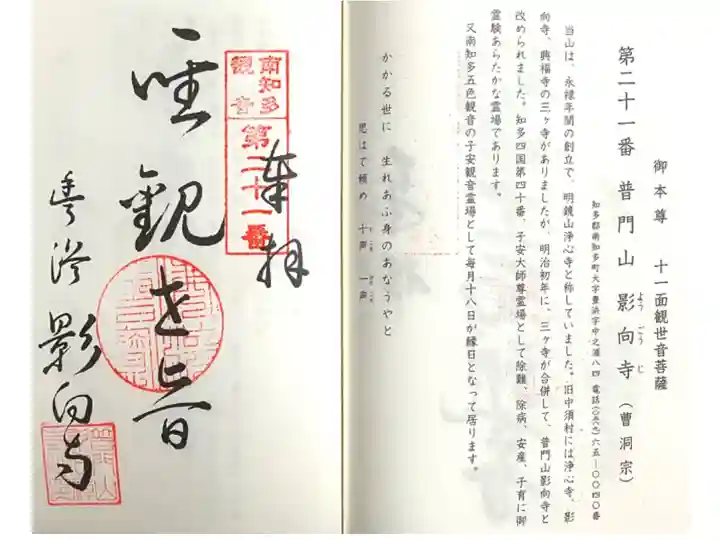 御本尊 十一面観世音菩薩
第二十一番 普門山 影向寺(曹洞宗)
ようごうじ
知多郡南知多町大字豊浜字中之浦八四 電話(〇五六九)六五―〇〇四〇番
当山は、永禄年間の創立で、明鏡山浄心寺と称していました。旧中須村には浄心寺、影
向寺、興福寺の三ヶ寺がありましたが、明治初年に、三ヶ寺が合併して、普門山影向寺と
改められました。知多四国第四十番、子安大師尊霊場として除難、除病、安産、子育に御
霊験あらたかな霊場であります。
又南知多五色観音の子安観音霊場として毎月十八日が縁日となって居ります。
かかる世に 生れあふ身のあなうやと
思はで頼め 十声 一声
とこえ ひとこえ
奉拝
南知多
観音
第二十一番
聖観世音
豊浜 影向寺